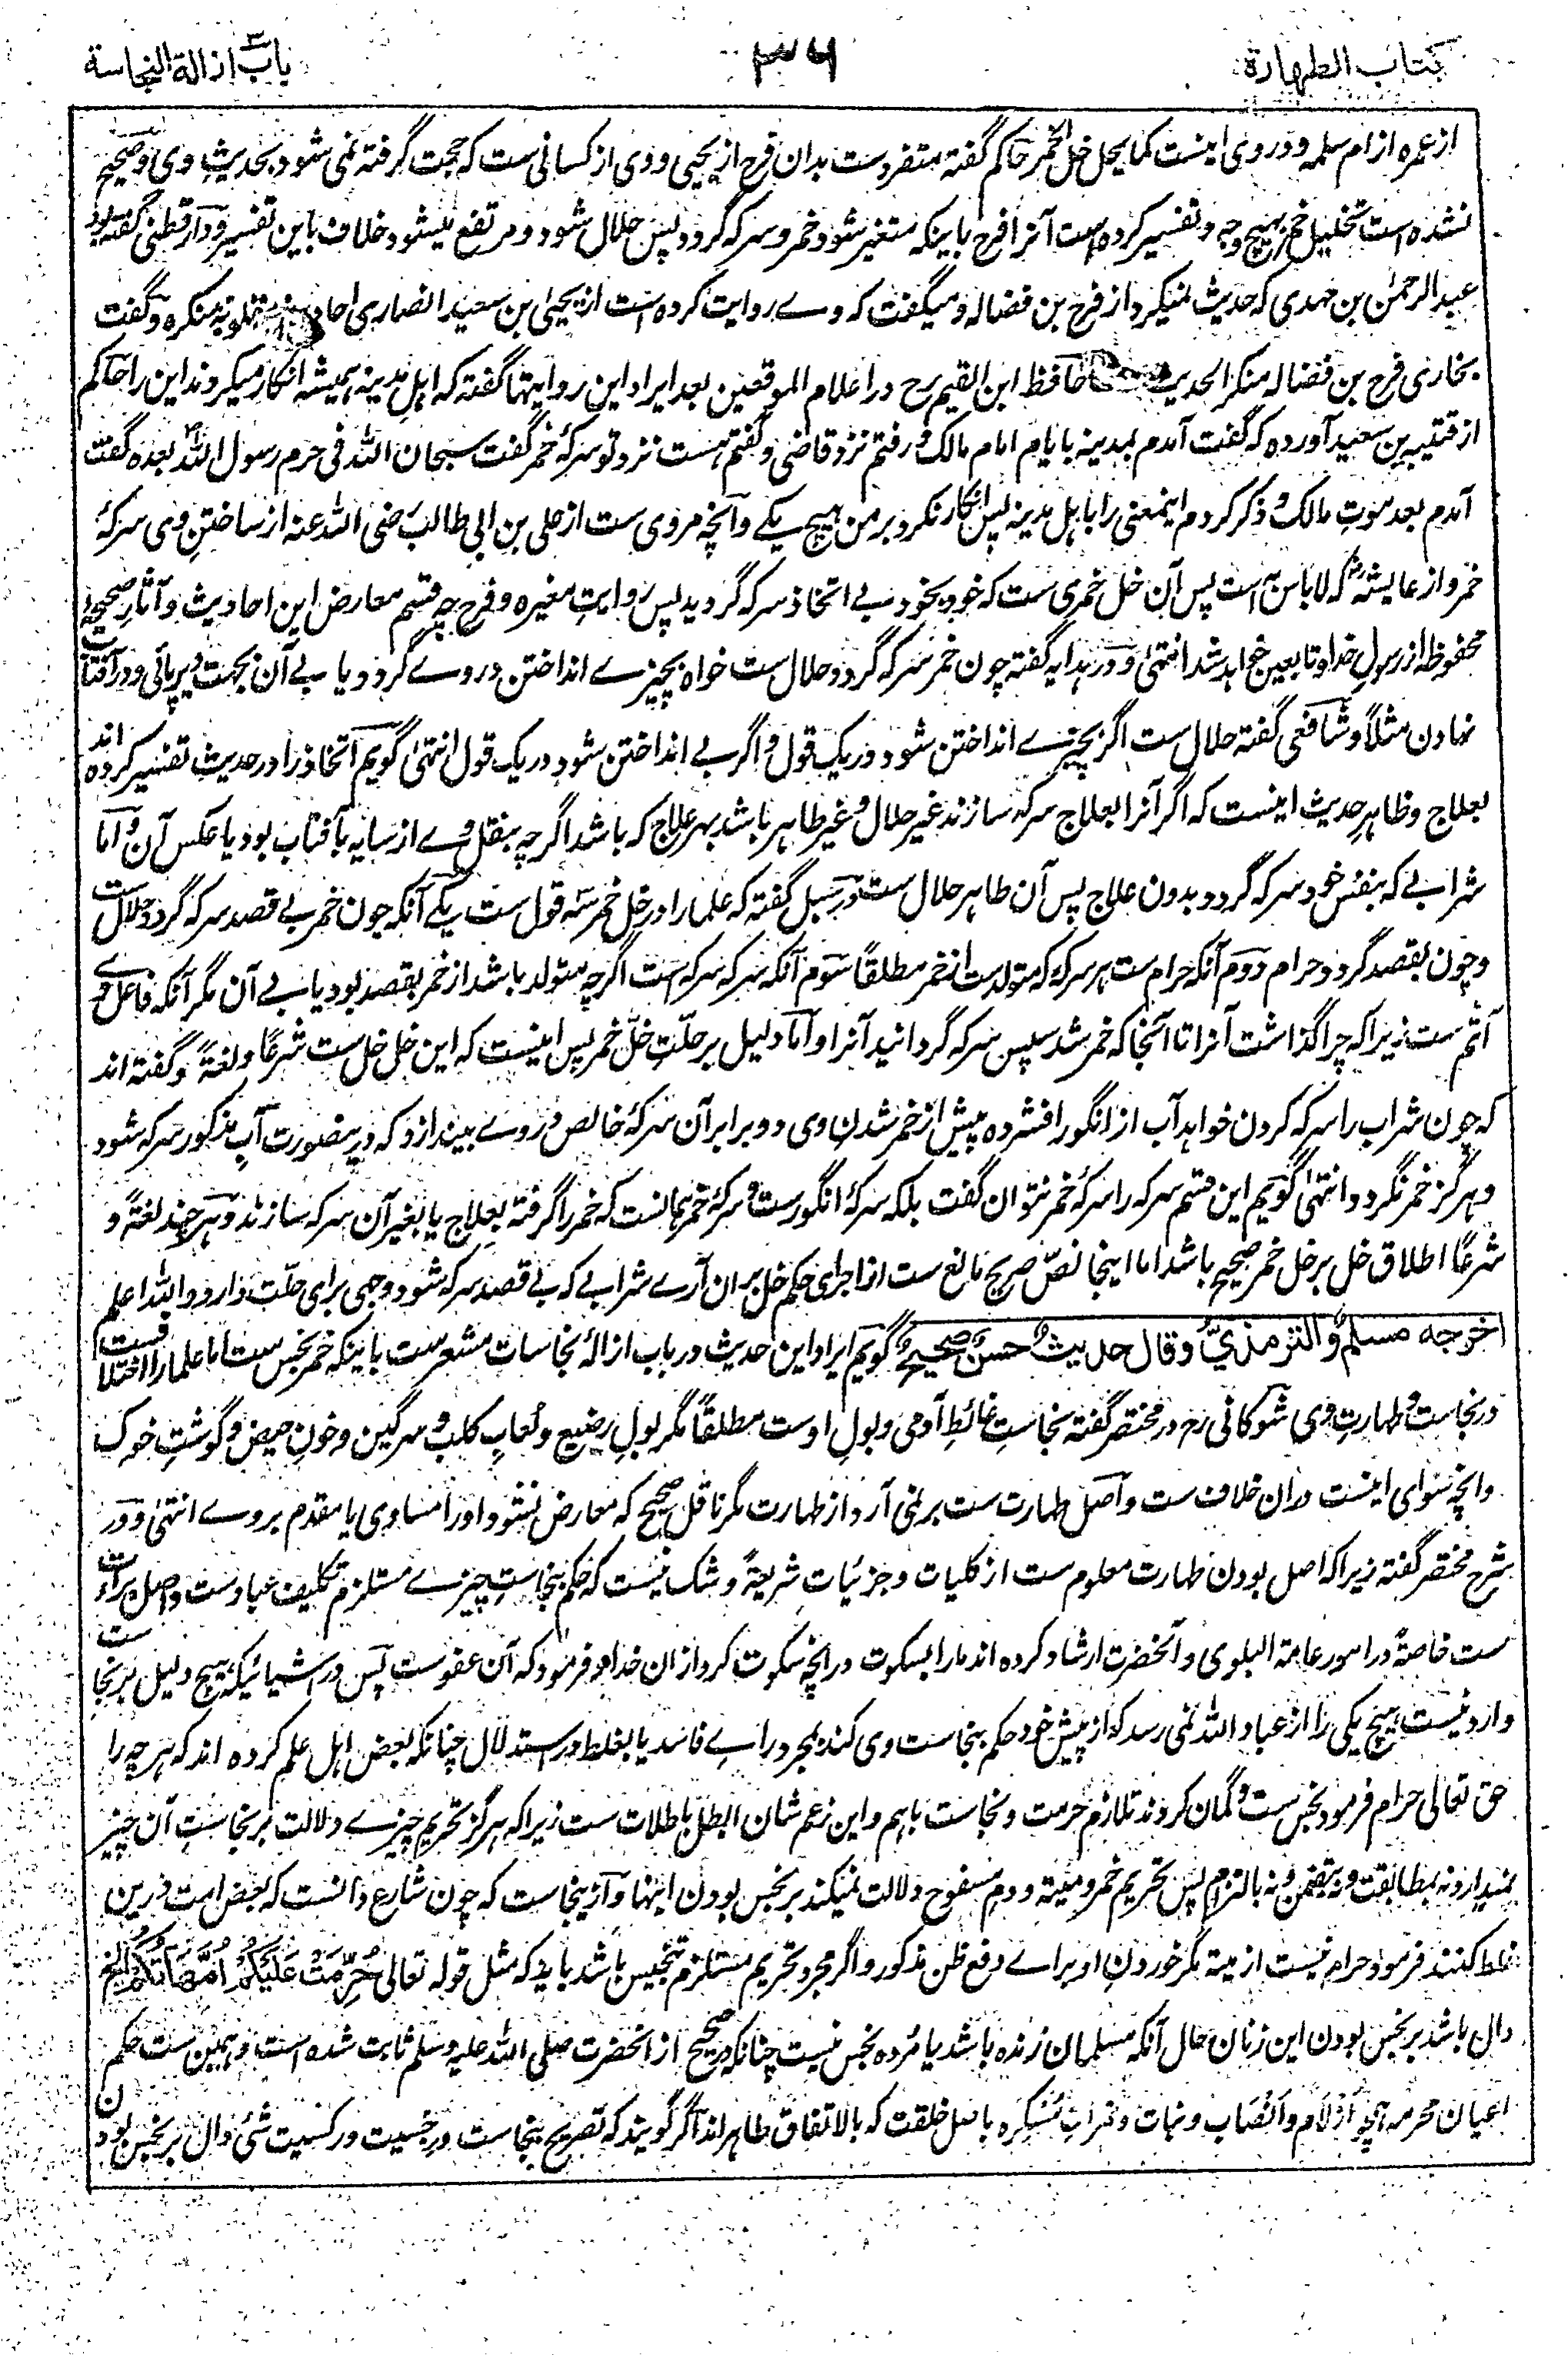 کتاب الطهارة
۳۶
باب ازالة النجاسة
از عمره از ام سلمه و در وی اینست کما یحل خل الخمر حاکم گفته متفردست بدان فرج از یحیی و وی از کسانی ست که حجت گرفته نمی شود بحدیث وی و صحیح
نشده است تخلیل خمر بهیچ وجه و تفسیر کرده است آنرا فرج باینکه متغیر شود خمر و سرکه گردد پس حلال شود و مرتفع میشود خلاف باین تفسیر و دارقطنی گفته بود
عبد الرحمٰن بن مهدی که حدیث نمیکرد از فرج بن فضاله و میگفت که وے روایت کرده است از یحییٰ بن سعید انصاری احادیث مقلوبه منکره و گفت
بخاری فرج بن فضاله منکر الحدیث حافظ ابن القیم رح در اعلام الموقعین بعد ایراد این روایتها گفته که اهل مدینه همیشه انکار میکردند این را حاکم
از قتیبه بن سعید آورده که گفت آمدم بمدینه بایام امام مالک و رفتم نزد قاضی و گفتم هست نزد تو سرکهٔ خمر گفت سبحان الله فی حرم رسول الله بعده گفت
آمدم بعد موت مالک و ذکر کردم اینمعنی را باهل مدینه پس انکار نکرد بر من هیچ یکے و آنچه مروی ست از علی بن ابی طالب رضی الله عنه از ساختن وی سرکهٔ
خمر و از عایشه که لا باس ست پس آن خل خمری ست که خود بخود بے اتخاذ سرکه گردید پس روایت مغیره و فرج چه قسم معارض این احادیث و آثار صحیحهٔ
محفوظه از رسول خدا و تابعین خواهد شد انتهیٰ و در هدایه گفته چون خمر سرکه گردد حلال ست خواه بچیزے انداختن در وے گردد یا بے آن بجهت دیرپائی و در آفتاب
نهادن مثلاً و شافعی گفته حلال ست اگر بچیزے انداختن شود در یک قول و اگر بے انداختن شود در یک قول انتهیٰ گویم اتخاذ را در حدیث تفسیر کرده اند
بعلاج و ظاهر حدیث اینست که اگر آنرا بعلاج سرکه سازند غیر حلال و غیر طاهر باشد بهر علاج که باشد اگرچه بنقل وے از سایه بآفتاب بود یا عکس آن و اما
شرابے که بنفس خود سرکه گردد بدون علاج پس آن طاهر حلال ست و در سبل گفته که علما را در خل خمر سه قول ست یکے آنکه چون خمر بے قصد سرکه گردد حلال ست
و چون بقصد گردد حرام دوم آنکه حرام ست هر سرکه که متولدست از خمر مطلقاً سوم آنکه سرکه سرکه است اگرچه متولد باشد از خمر بقصد بود یا بے آن مگر آنکه فاعل وے
آثم ست زیراکه چرا گذاشت آنرا تا آنجا که خمر شد سپس سرکه گردانید آنرا و اما دلیل بر حلت خل خمر پس اینست که این خل خل ست شرعًا و لغةً و گفته اند
که چون شراب را سرکه کردن خواهد آب از انگور افشرده پیش از خمر شدن وی دو برابر آن سرکهٔ خالص در وے بیندازد که درینصورت آب مذکور سرکه شود
و هرگز خمر نگردد انتهیٰ گویم این قسم سرکه را سرکهٔ خمر نتوان گفت بلکه سرکهٔ انگورست و سرکهٔ خمر همانست که خمر را گرفته بعلاج یا بغیر آن سرکه سازند و هرچند لغةً و
شرعًا اطلاق خل بر خل خمر صحیح باشد اما اینجا نص صریح مانع ست از اجرای حکم خل بران آرے شرابے که بے قصد سرکه شود وجهی برای حلت دارد والله اعلم
اخرجه مسلم والترمذي وقال حديث حسن صحيح گویم ایراد این حدیث در باب ازالهٔ نجاسات مشعرست باینکه خمر نجس ست اما علما را اختلاف ست
در نجاست و طهارت وی شوکانی رح در مختصر گفته نجاست غائط آدمی و بول اوست مطلقاً مگر بول رضیع و لعاب کلب و سرگین و خون حیض و گوشت خوک
و آنچه سوای اینست دران خلاف ست و اصل طهارت ست بر نمی آرد از طهارت مگر ناقل صحیح که معارض نشود او را مساوی یا مقدم بروے انتهیٰ و در
شرح مختصر گفته زیراکه اصل بودن طهارت معلوم ست از کلیات و جزئیات شریعة و شک نیست که حکم بنجاست چیزے مستلزم تکلیف عبادست و اصل براءت
ست خاصةً در امور عامة البلوی و آنحضرت ارشاد کرده اند ما را بسکوت درانچه سکوت کرد ازان خدا و فرمود که آن عفوست پس در اشیائیکه هیچ دلیل بر نجاست
وارد نیست هیچ یکی را از عباد الله نمی رسد که از پیش خود حکم بنجاست وی کند بمجرد راے فاسد یا بغلط در استدلال چنانکه بعض اهل علم کرده اند که هرچه را
حق تعالی حرام فرمود نجس ست و گمان کردند تلازم حرمت و نجاست باهم و این زعم شان ابطل باطلات ست زیراکه هرگز تحریم چیزے دلالت بر نجاست آن چیز
نمیدارد نه بمطابقت و نه بتضمن و نه بالتزام پس تحریم خمر و میتة و دم مسفوح دلالت نمیکند بر نجس بودن اینها و ازینجاست که چون شارع دانست که بعض امت درین
غلط کنند فرمود حرام نیست از میتة مگر خوردن او براے دفع ظن مذکور و اگر مجرد تحریم مستلزم تنجیس باشد باید که مثل قوله تعالی حُرِّمَتْ عَلَيْكُمْ اُمَّهَاتُكُمْ الخ
دال باشد بر نجس بودن این زنان حال آنکه مسلمان زنده باشد یا مرده نجس نیست چنانکه در صحیح از انحضرت صلی الله علیه وسلم ثابت شده است و همین ست حکم
اعیان محرمه همچو ازلام و انصاب و نبات و ثمرات مسکره باصل خلقت که بالاتفاق طاهراند اگر گویند که تصریح بنجاست و رجسیت و رکسیت شئ دال بر نجس بودن